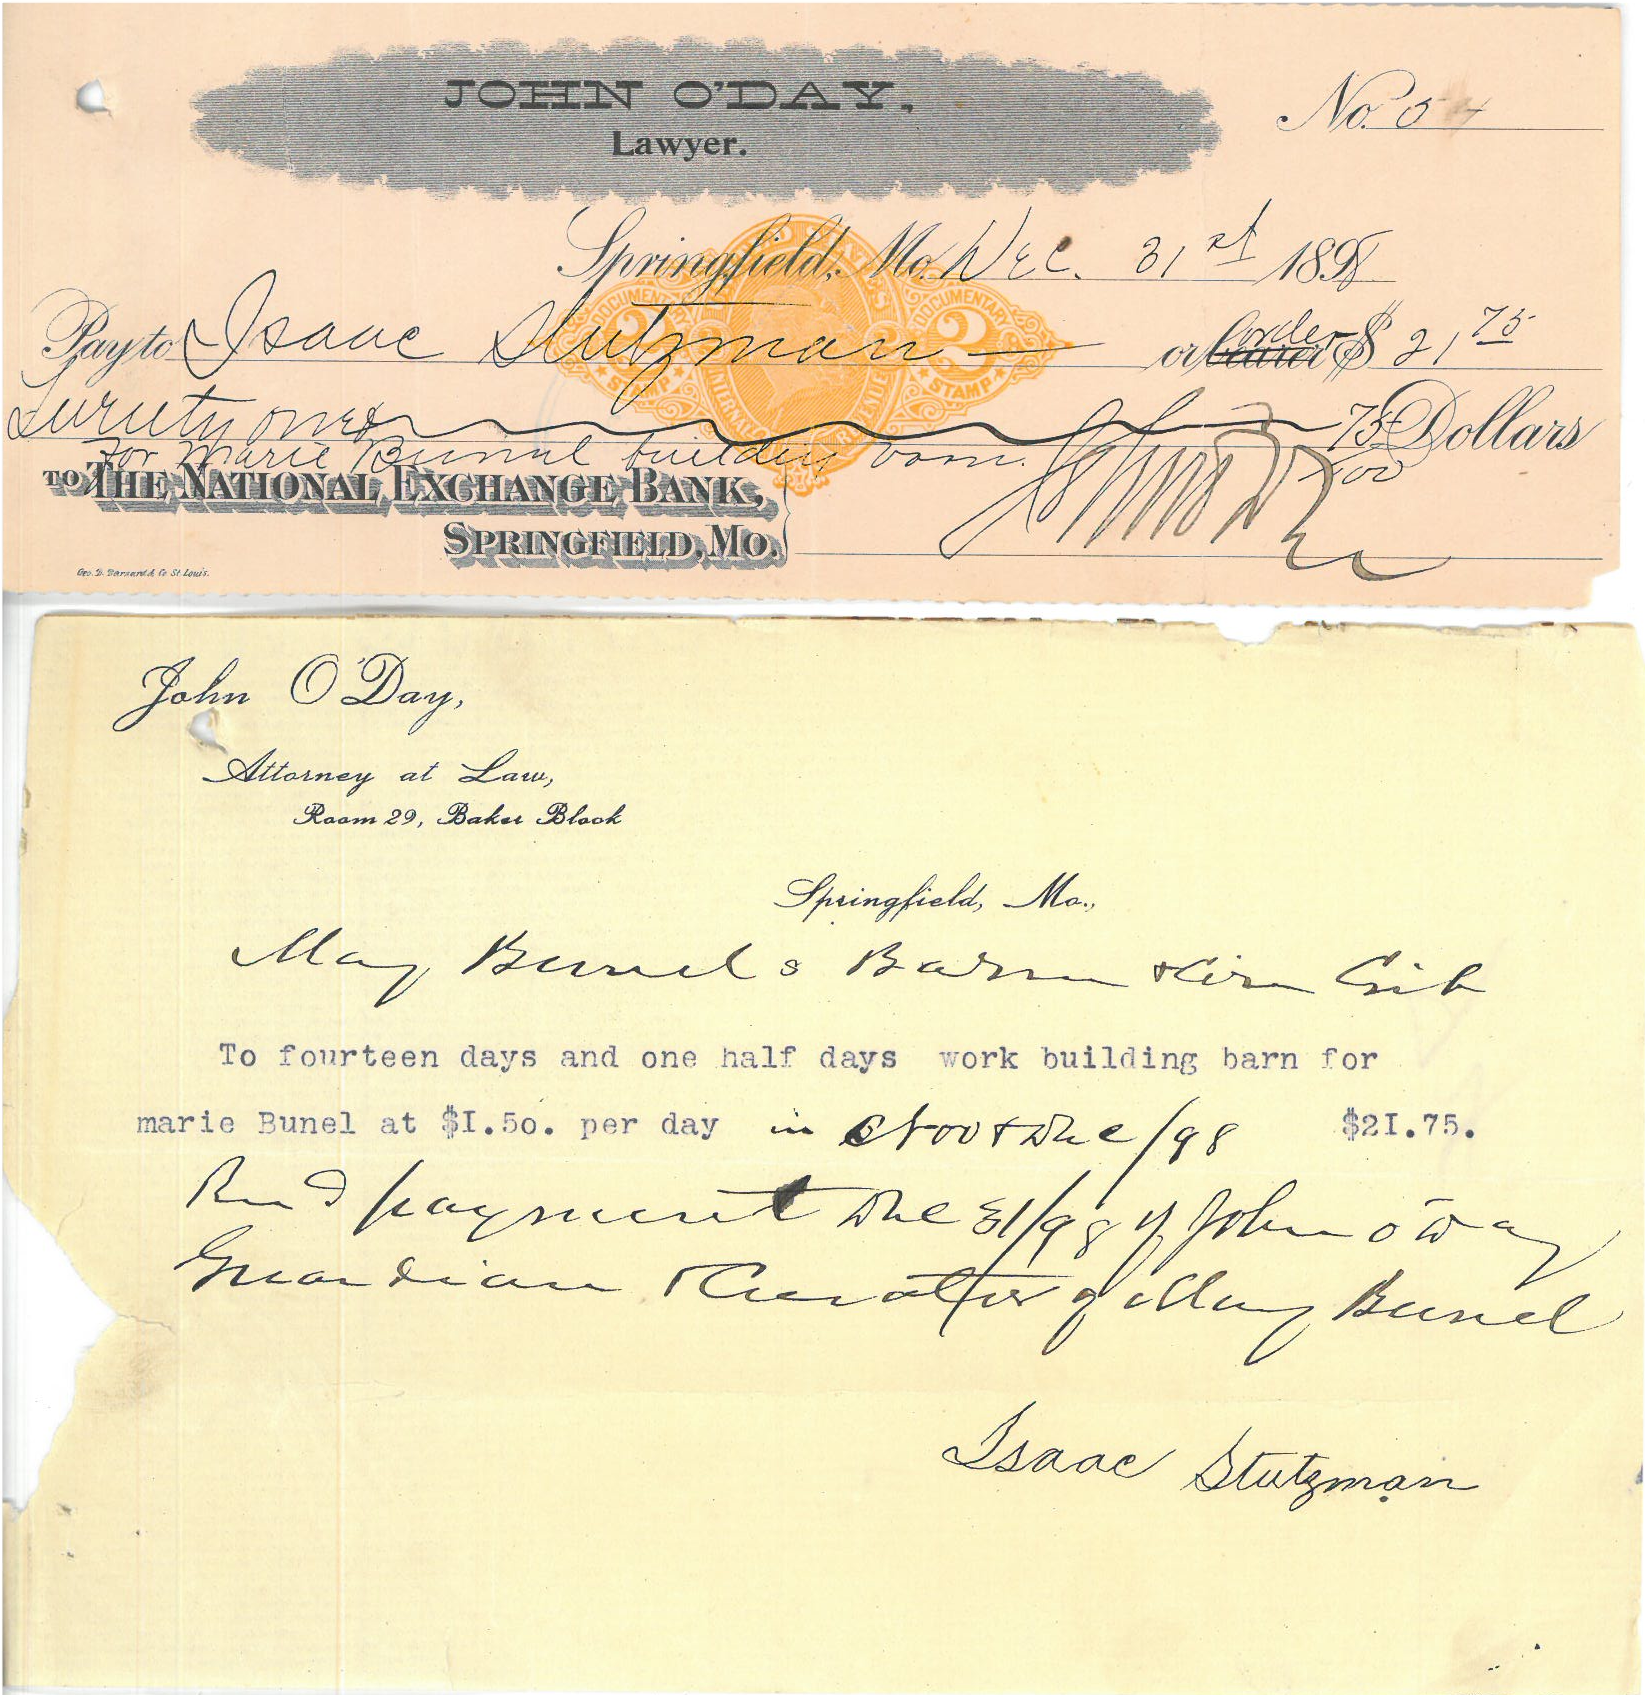 JOHN O'DAY,
Lawyer.
No. 54
Springfield, Mo. Dec. 31st 1898
Pay to Isaac Stutzman or bearer order $ 21 75
Twenty one & 75/100 Dollars
For Marie Bunel building barn.
TO THE NATIONAL EXCHANGE BANK,
SPRINGFIELD, MO.
John O'Day
Geo. D. Barnard & Co St. Louis.
DOCUMENTARY DOCUMENTARY
2 2
STAMP STAMP
John O'Day,
Attorney at Law,
Room 29, Baker Block
Springfield, Mo.,
May Bunels Barn & Crib
To fourteen days and one half days work building barn for
marie Bunel at $1.50. per day in Nov & Dec/98 $21.75.
Recd payment Dec 31/98 of John O'Day
Guardian & Curator of May Bunel
Isaac Stutzman